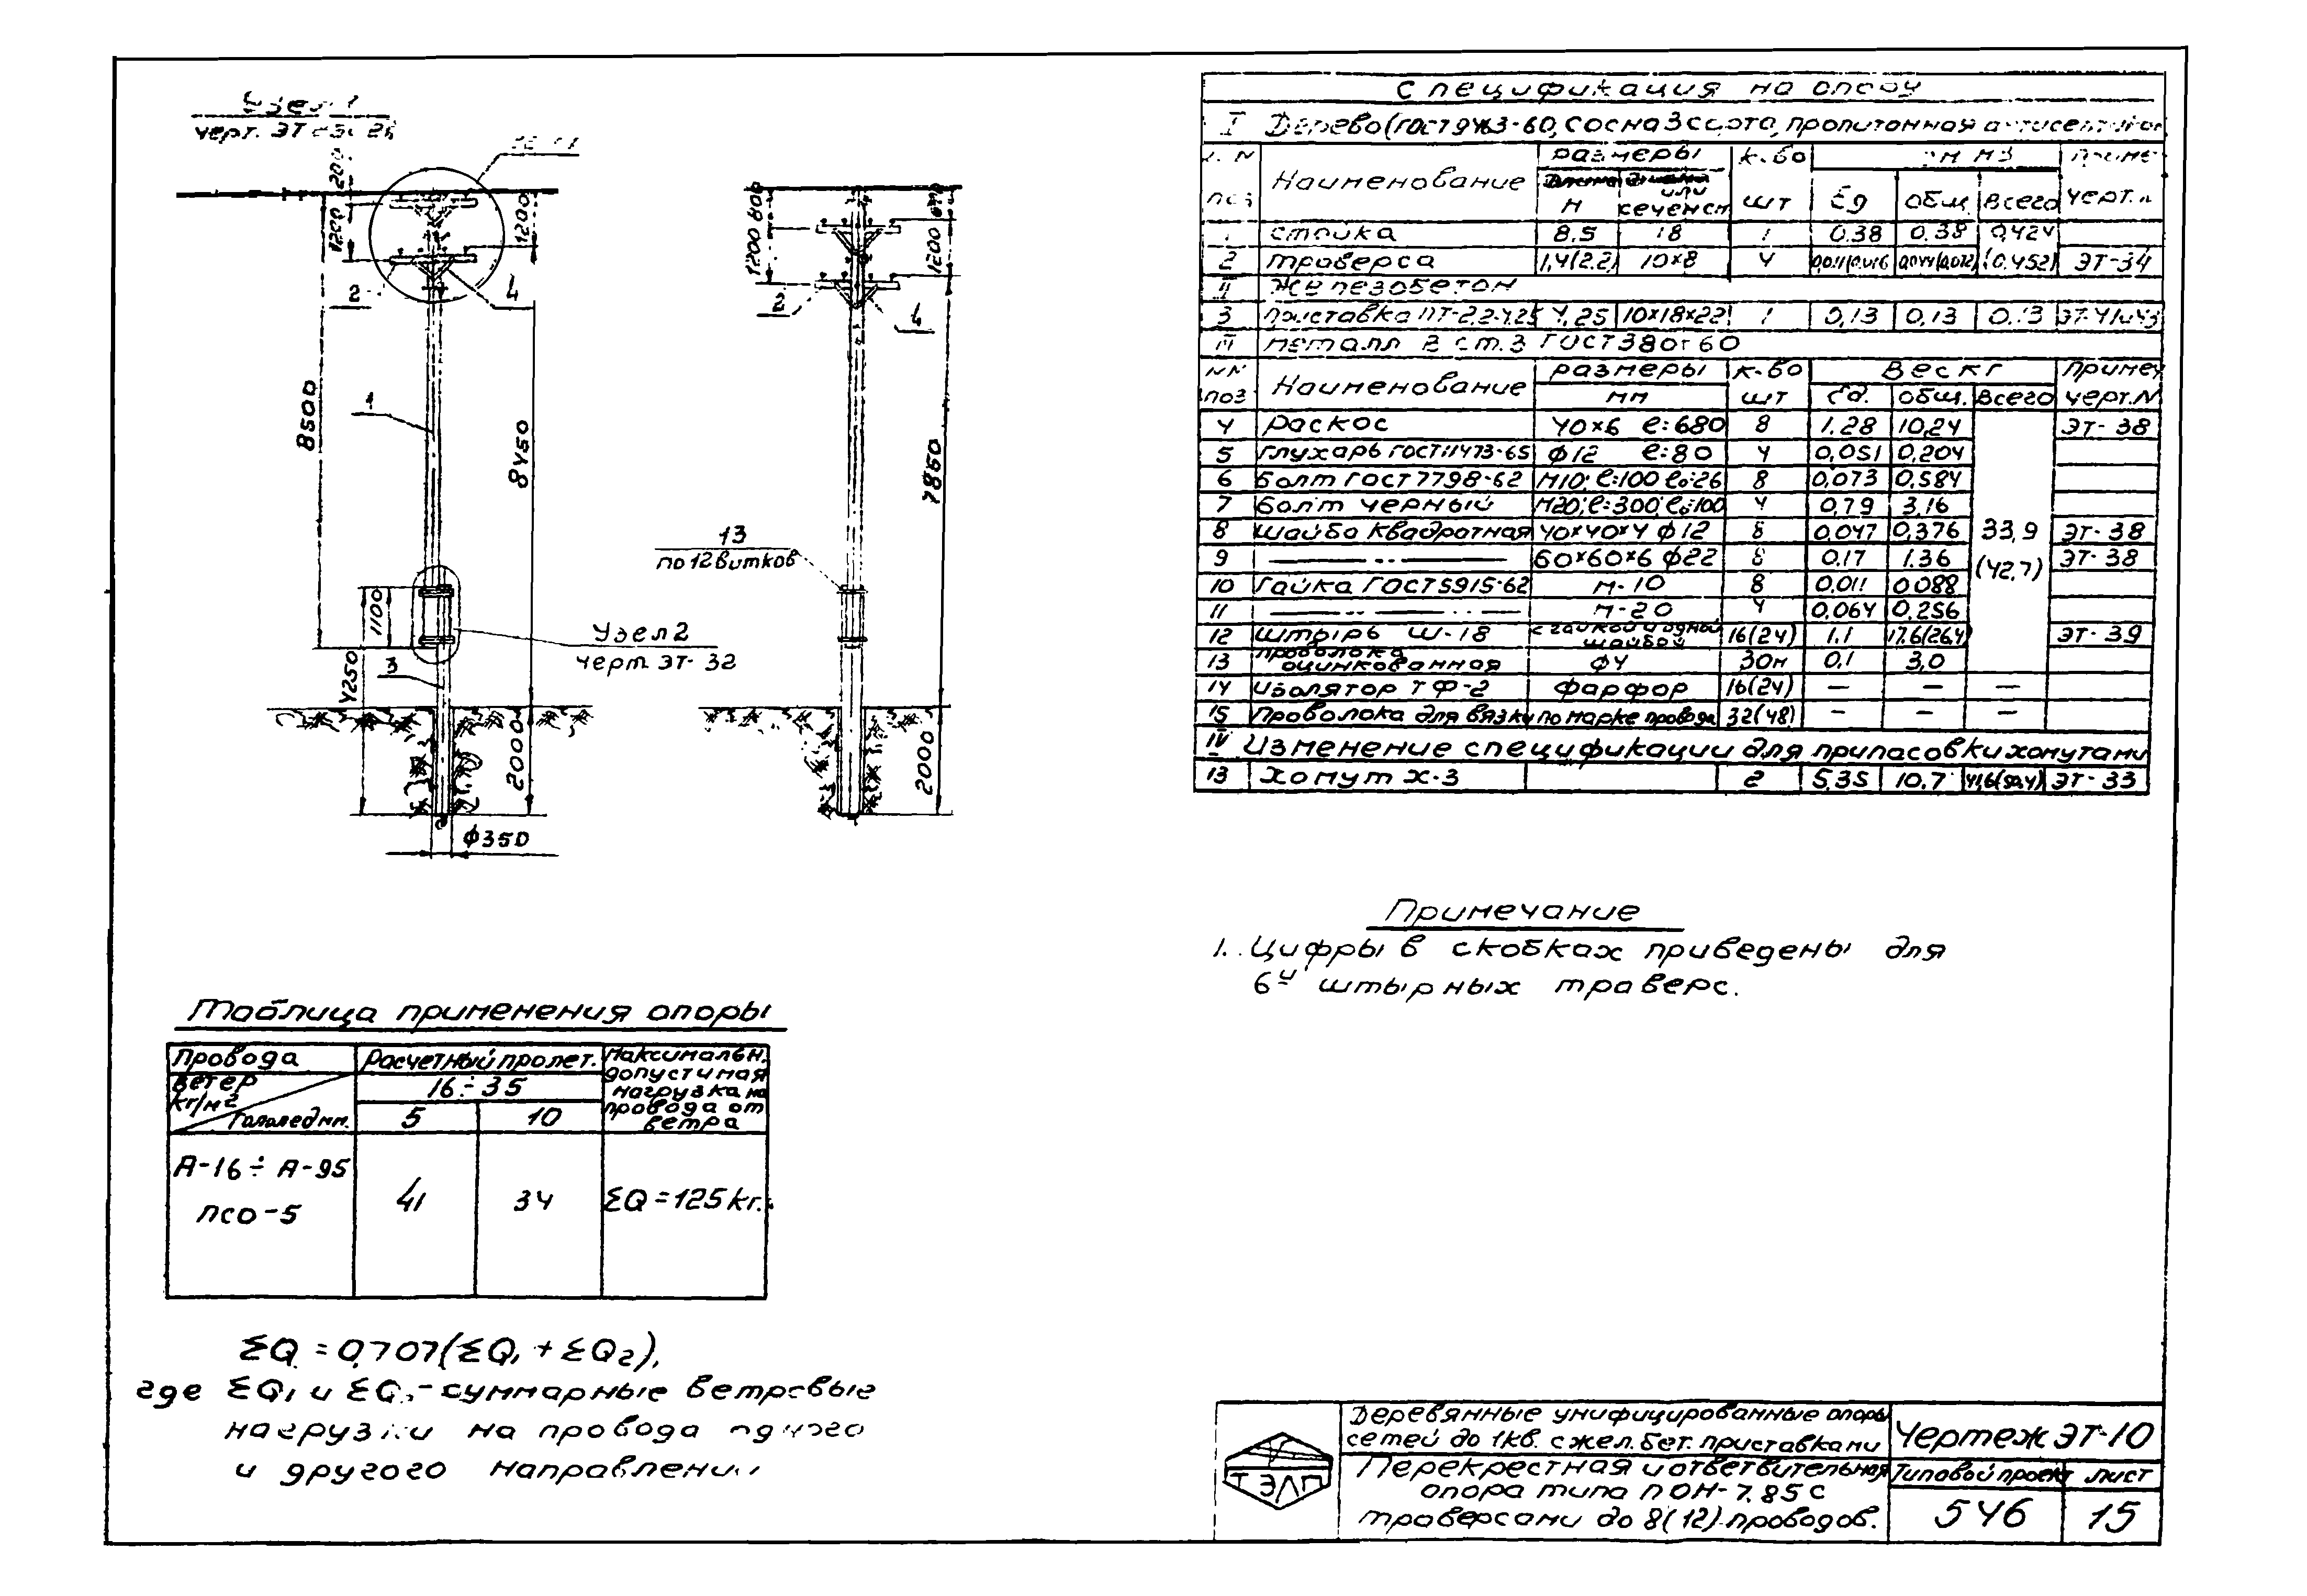 Узел 1
черт. ЭТ
200
1200
1200
2
4
8500
1
8450
1100
4250
3
2000
ф350
Узел 2
черт. ЭТ-32
1200 800
1200
2
4
7850
13
по 12 витков
2000
Спецификация на опору
I Дерево (ГОСТ 9463-60, сосна 3 сорта, пропитанная антисептиком
Наименование размеры к-во
поз м или сечение см шт Ед общ. Всего черт. N
1 стойка 8.5 18 1 0.38 0.38 0,424
2 траверса 1,4(2.2) 10×8 4 0,011(0.016) 0,044(0,072) (0.452) ЭТ-34
II Железобетон
3 приставка ПТ-2.2-4.25 4.25 10×18×22 1 0,13 0,13 0.13 ЭТ-41и43
III Металл В ст.3 ГОСТ 380-60
NN Наименование размеры к-во Вес кг Примеч
поз мм шт Ед. общ. Всего черт. N
4 раскос 40×6 ℓ=680 8 1.28 10,24 ЭТ-38
5 глухарь ГОСТ 11473-65 ф12 ℓ=80 4 0,051 0,204
6 болт ГОСТ 7798-62 М10; ℓ=100 ℓ₀=26 8 0,073 0,584
7 болт черный М20; ℓ=300; ℓ₀=100 4 0,79 3,16
8 шайба квадратная 40×40×4 ф12 8 0,047 0,376 33,9 ЭТ-38
9 —··— 60×60×6 ф22 8 0.17 1.36 (42,7) ЭТ-38
10 Гайка ГОСТ 5915-62 М-10 8 0,011 0,088
11 —··— М-20 4 0,064 0,256
12 штырь Ш-18 с гайкой и одной шайбой 16(24) 1.1 17.6(26.4) ЭТ-39
13 проволока оцинкованная ф4 30м 0,1 3,0
14 изолятор ТФ-2 фарфор 16(24) — — —
15 Проволока для вязки по марке провода 32(48) — — —
IV Изменение спецификации для припасовки хомутами
13 хомут Х-3 2 5,35 10,7 41,6(50,4) ЭТ-33
Примечание
1. Цифры в скобках приведены для
6и штырных траверс.
Таблица применения опоры
Провода Расчетный пролет. Максимальн. допустимая нагрузка на провода от ветра
Ветер кг/м2 Гололед мм. 16÷35
5 10
А-16÷А-95
ПСО-5
41 34 ΣQ=125 кг.
ΣQ=0,707(ΣQ₁+ΣQ₂),
где ΣQ₁ и ΣQ₂-суммарные ветровые
нагрузки на провода одного
и другого направлении
ТЭЛП
Деревянные унифицированные опоры
сетей до 1кв. с жел. бет. приставками
Чертеж ЭТ-10
Перекрестная и ответвительная
опора типа ПОН-7.85 с
траверсами до 8(12) проводов.
Типовой проект лист
546 15